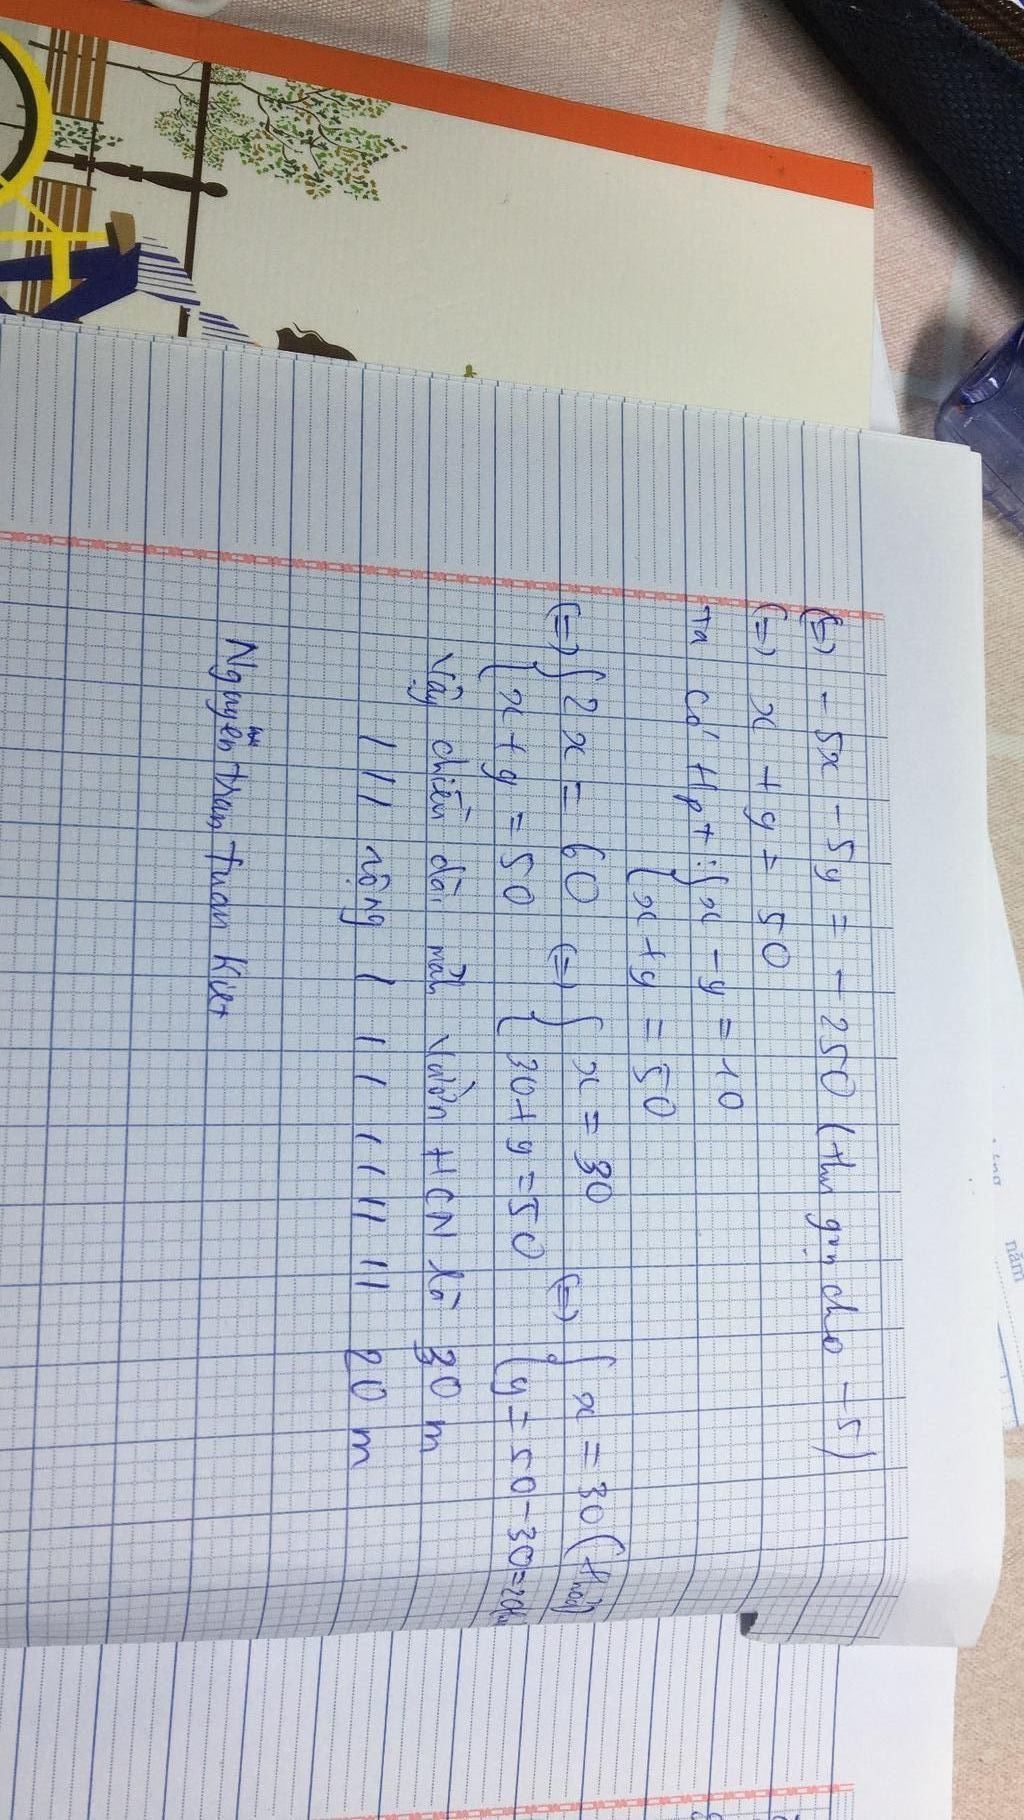 (=) - 5x - 5y = - 250 (thu gọn cho - 5)
(=) x + y = 50
Ta có Hpt: { x - y = 10
{ x + y = 50
(=) { 2x = 60 (=) { x = 30 (=) { x = 30 (thoả)
{ x + y = 50 { 30 + y = 50 { y = 50 - 30 = 20
Vậy chiều dài mảnh vườn HCN là 30 m
rộng 20 m
Nguyễn Tuấn Kiệt
năm